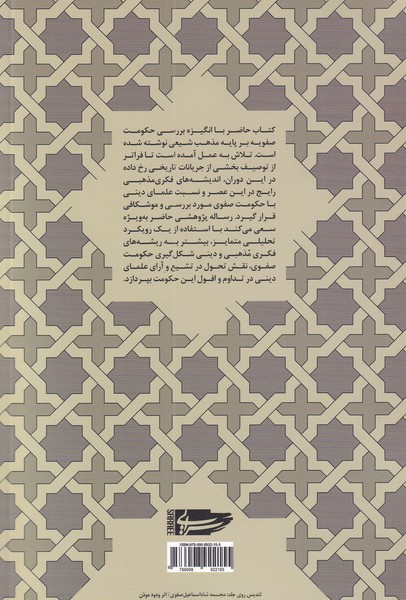 کتاب حاضر با انگیزه بررسی حکومت
صفویه بر پایه مذهب شیعی نوشته شده
است. تلاش به عمل آمده است تا فراتر
از توصیف بخشی از جریانات تاریخی رخ داده
در این دوران، اندیشه‌های فکری‌مذهبی
رایج در این عصر و نسبت علمای دینی
با حکومت صفوی مورد بررسی و موشکافی
قرار گیرد. رساله پژوهشی حاضر به‌ویژه
سعی می‌کند با استفاده از یک رویکرد
تحلیلی متمایز، بیشتر به ریشه‌های
فکری مذهبی و دینی شکل‌گیری حکومت
صفوی، نقش تحول در تشیع و آرای علمای
دینی در تداوم و افول این حکومت بپردازد.
تندیس روی جلد: مجسمه شاه‌اسماعیل‌صفوی/ اثر ودود موذن